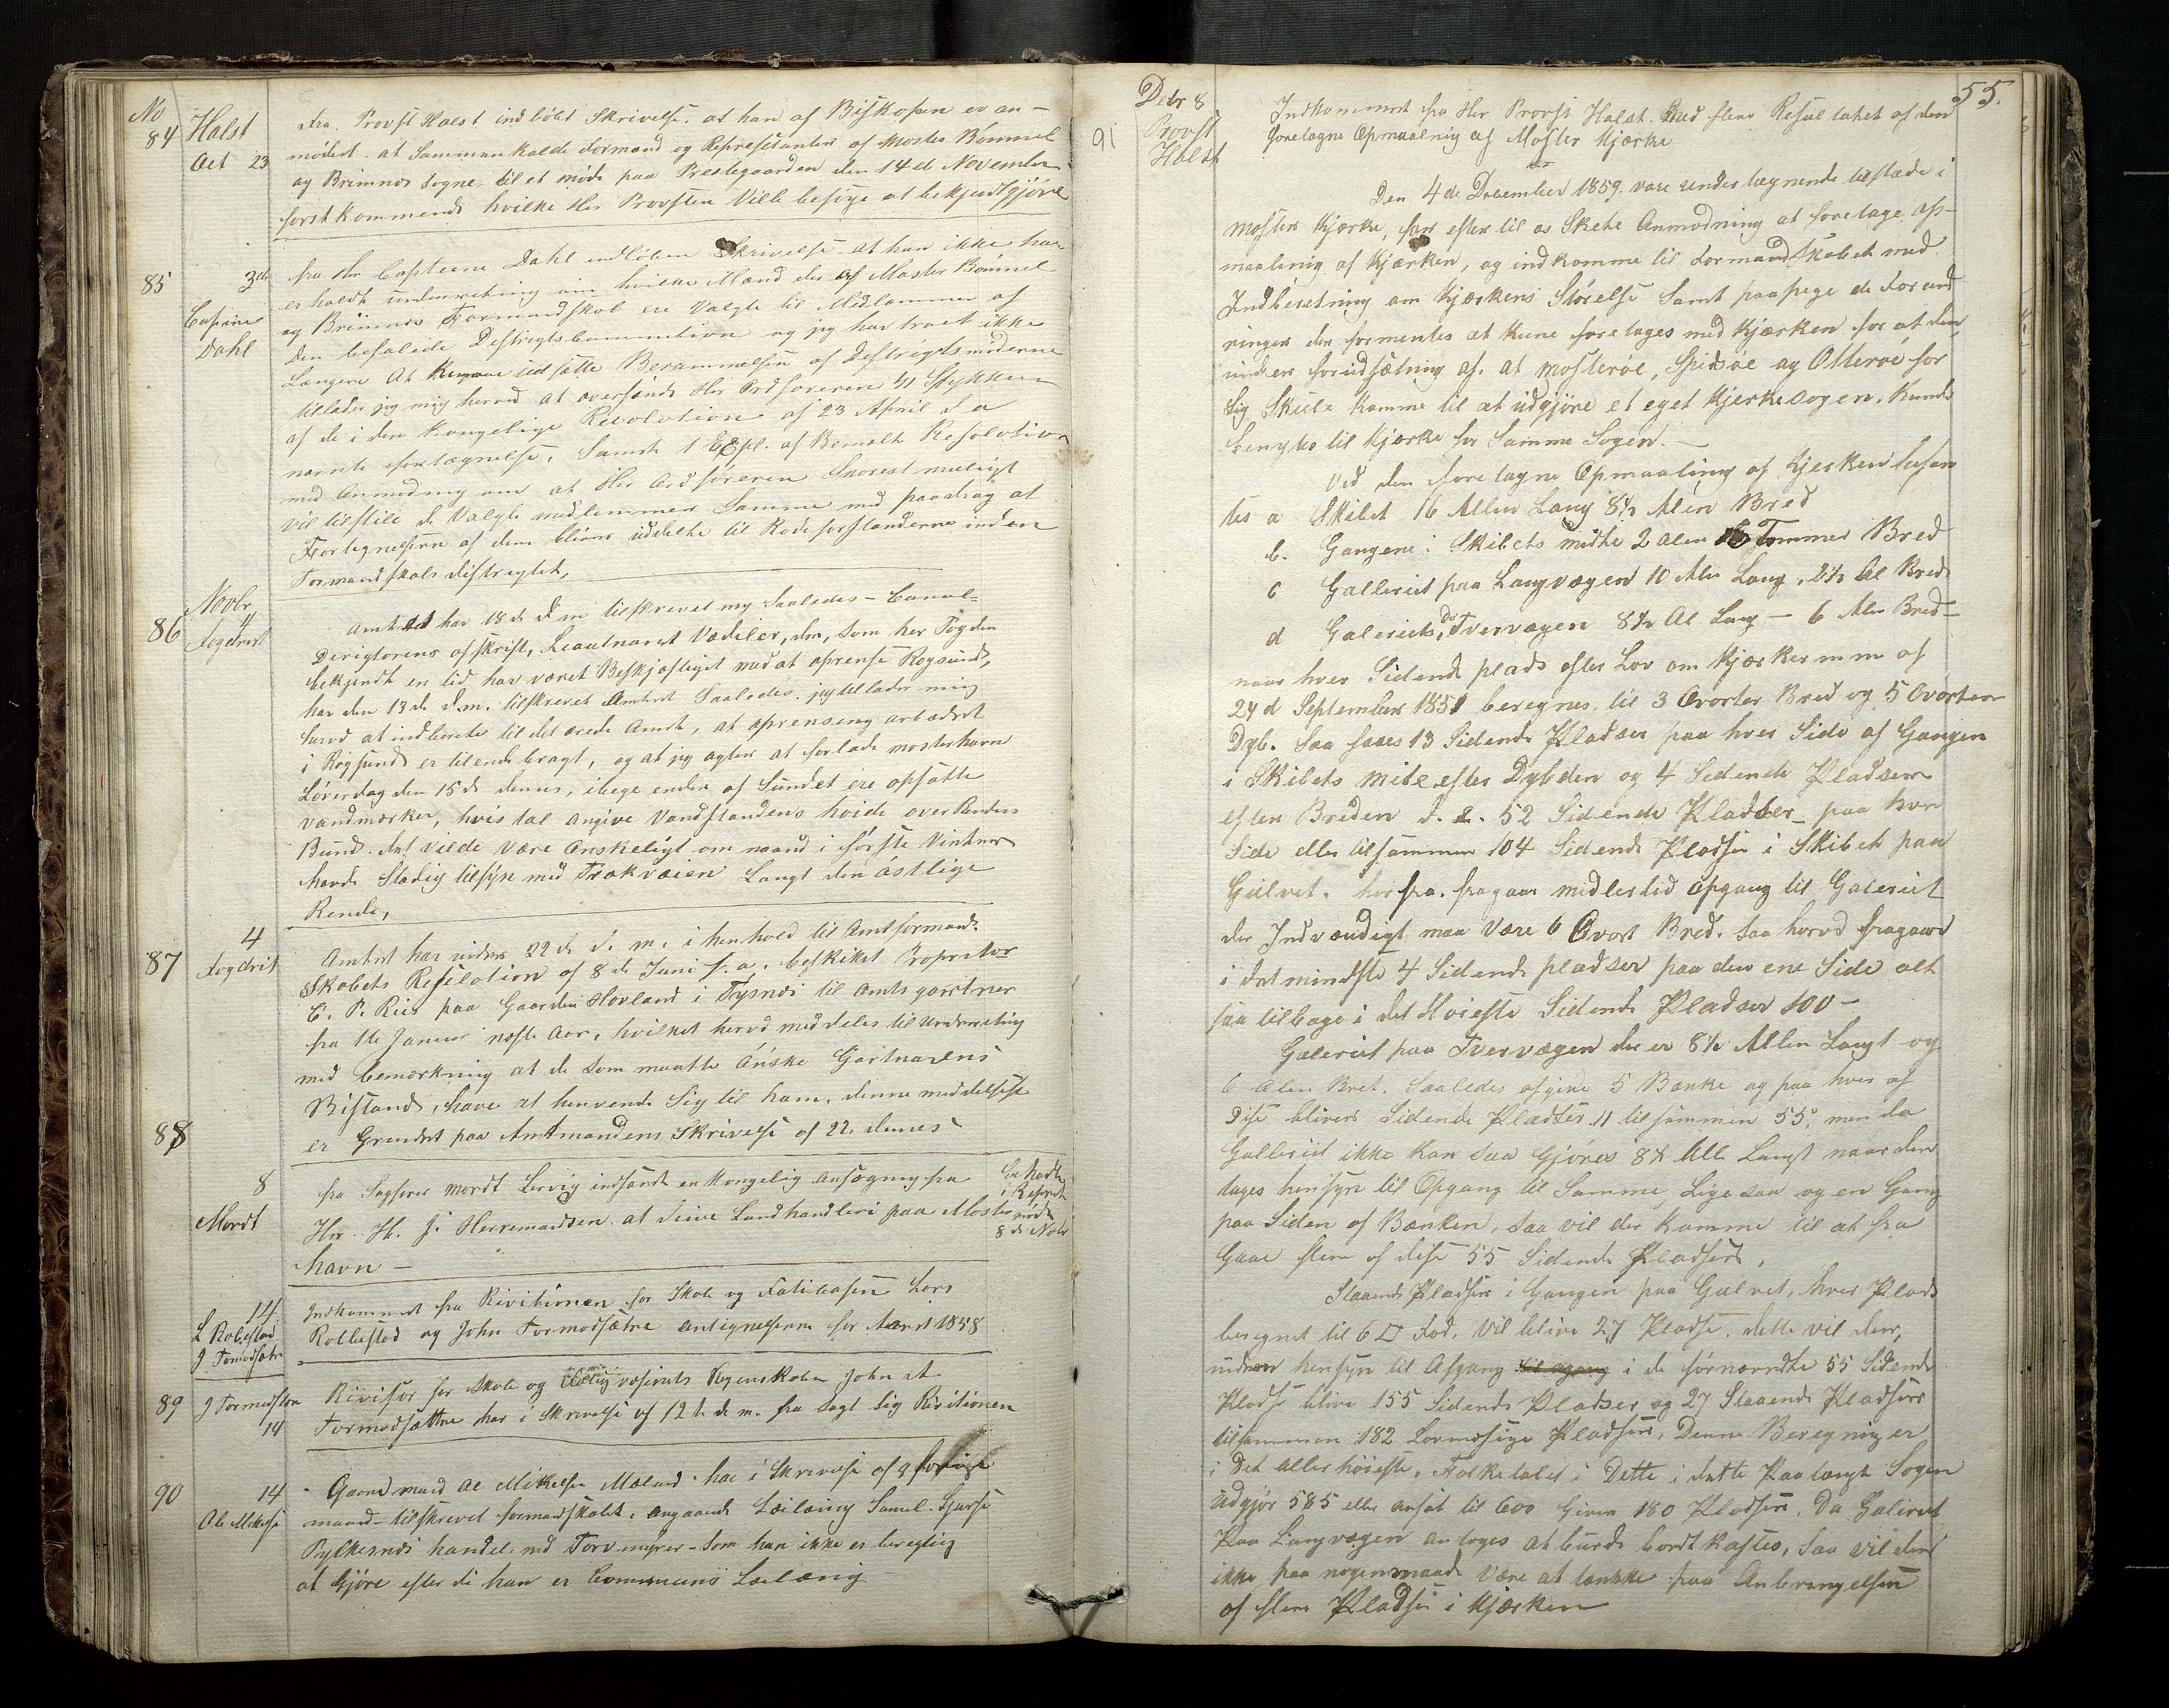 No
84 Halst
Oct 23
fra Provst Halst indløbet Skrivelse, at han af Biskopen er an-
modet at Sammenkalde Formænd og Representanter af Moster Bømmel
og Brimnes Sogne til et møde paa Prestegaarden den 14de November
førstkommende hvilke Her Provsten Vilde besørge at bekjendtgjøre
85 3de
Capine
Dahl
fra Her Capteine Dahl indløben Skrivelse at han ikke har
erholdt underretning om hvilke Mænd der af Moster Bømmel
og Brimnes Formandskab ere Valgte til Medlemmer af
den befalede Distrigtscommition og jeg har troet ikke
Længere At kunne udsætte Berammelsen af Distrigtsmøderne
tillader jeg mig herved at oversende Her Ordføreren 4 Stykker
af de i den Kongelige Risolution af 23 April d a
nævnte fortægnelse, Samt 1 Expl. af Bemelte Resolution
med Anmodning om at Her Ordføreren Snarest muligt
vil tilstile de Valgte medlemmer Samme med paadrag at
Fortegnelsen af dem blive uddelte til Rodeforstanderne inden
Formandskabsdistrigtet,
Novbr
86 4
Fogdrit
Amtet har 18de d m tilskrevet mig Saaledes - Canal-
Dirigtørens afskrift, Leautnant Vedeler, der, som her Fogden
bekjendt en tid har været Beskjæftiget med at oprense Rogsund,
har den 13de d.m. tilskrevet Amtet Saaledes. jeg tillader mig
herved at indberete til det ærede Amt, at oprensning arbædet
i Rogsund er tilendebragt, og at jeg agter at forlade mosterhavn
Løverdag den 15de dennes, i bege ender af Sundet ere opsatte
vandmærker, hvis tal angive Vandstandens høide over Rendens
Bund. det vilde være Ønskeligt om maand i første Vinter
havde Stadig tilsyn med Trækveien Langs den østlige
Rende,
87 4
Fogdrit
Amtet har under 22de d. m. i henhold til Amtsformand-
Skabets Resilotion af 8de Juni f. a. beskikket Proprietær
C. P. Riis paa Gaarden Hovland i Tysnes til Amtsgartner
fra 1te Januar næste Aar, hvilket herved meddeles til underretning
med bemærkning at de som maatte Ønske Gartnerens
Bistand, have at henvende Sig til ham. denne meddelelse
er Grundet paa Amtmandens Skrivelse af 22. dennes
88
8
Mordt
fra Sagfører Mordt Lervig indsendt en Kongelig ansøgning fra
Her H. J. Herremandsen at drive Landhandleri paa Moster
havn -
8de Novbr
14
L Robestad
J Tormodsæter
Indkommet fra Rivitionen for Skole og Fatikasen Lars
Rollestad og John Tormodsætre antignelserne for Aaret 1858
89 J Tormodsæter
14
Rivisor for Skole og fattigvæsenets Regenskaber John st
Tormodsættre har i Skrivelse af 12te d. m. fra Sagt Sig Rivitionen
90 14
Ole Mikelse
Gaardmand Ole Mikelsen Mæland har i Skrivelse af 9 forrige
maaned tilskrevet formandskabet, angaaende Leilænding Samel
Pylkesnes handel med Torvmyrer - Som han ikke er beregtig
at Gjøre efter di han er Communens Leilænig
55.
Debr 8
91 Provst
Halst
Indkommet fra Her Provst Halst. med flere Resultatet af den
foretagne Opmaaling af Moster Kjærke
Den 4de December 1859. vare undertegnende tilstæde i
mosters Kjærke, for efter til os Skete Anmodning at foretage op-
maaling af Kjærken, og indkomme til Formandskabet med
Indberetning om Kjærkens Størelse Samt paapege de Forand
ringer der formentes at kune foretages med Kjærken for at den,
under forudsætning af, at mosterøe, Spidsøe og Otterøe for
Sig Skule komme til at udgjøre et eget Kjerkesogen, kunde
benytes til Kjærke for Samme Sogen. -
Ved den foretagne Opmaaling af Kjerken befan
tes a Skibet 16 Allen Lang 8½ Alen Bred
b. Gangene i Skibets midte 2 alen Tommer Bred
c Galleriet paa Langvægen 10 Alen Lang, 2½ Al Bred
d Galeriets, do Tvervægen 8½ Al Lang - 6 Alen Bred -
naar hver Sidende plads efter Lov om Kjærker m m af
24d September 1851 beregnes til 3 Qvarter Bred og 5 Qvarter
Dyb. Saa faaes 13 Sidende Pladser paa hver Side af Gangen
i Skibets mite efter Dybden og 4 Sedende Pladser
efter Breden d. e. 52 Sidende Pladser - paa hver
Side eller tilsammen 104 Sidende Pladser i Skibet paa
Gulvet. herfra fragaar midlertid Opgang til Galeriet
der Indvændigt maa Være 6 Qvart Bred. Saa herved fragaar
i det mindste 4 Sidende pladser paa den ene Side alt
saa tilbage i det Høieste Sidende Pladser 100 -
Galeriet paa Tvervægen der er 8½ Allen Langt og
6 Alen Bret. Saaledes afgive 5 Bænke og paa hver af
dise bliver Sidende Pladser 11 tilsammen 55, men da
Galleriet ikke kan Saa Gjøres 8½ Alle Langt naar der
tages hensyn til Opgang til Samme, Lige saa og en Gang
paa Siden af Bænken, Saa vil der komme til at fra
Gaae flere af disse 55 Sidende Pladser,
Staaende Pladser i Gangen paa Gulvet, hver Plads
beregnet til 6 □ Fod, Vil blive 27 Pladse. dette vil der,
uden hensyn til Afgang til agang i de førnævnte 55 Sidende
Pladse blive 155 Sidende Pladser og 27 Staaende Pladser
tilsammen 182 Lovmæsige Pladser, Denne Beregning er
i det allerhøieste. Folketalet i Dette i dette Paatænkte Sogen
udgjør 585 eller ansat til 600 Giver 180 Pladser. Da Galeriet
Paa Langvægen antages at burde bordtkastes, Saa vil der
ikke paa nogenmaade Være at tænke paa Anbringelsen
af flere Pladser i Kjærken